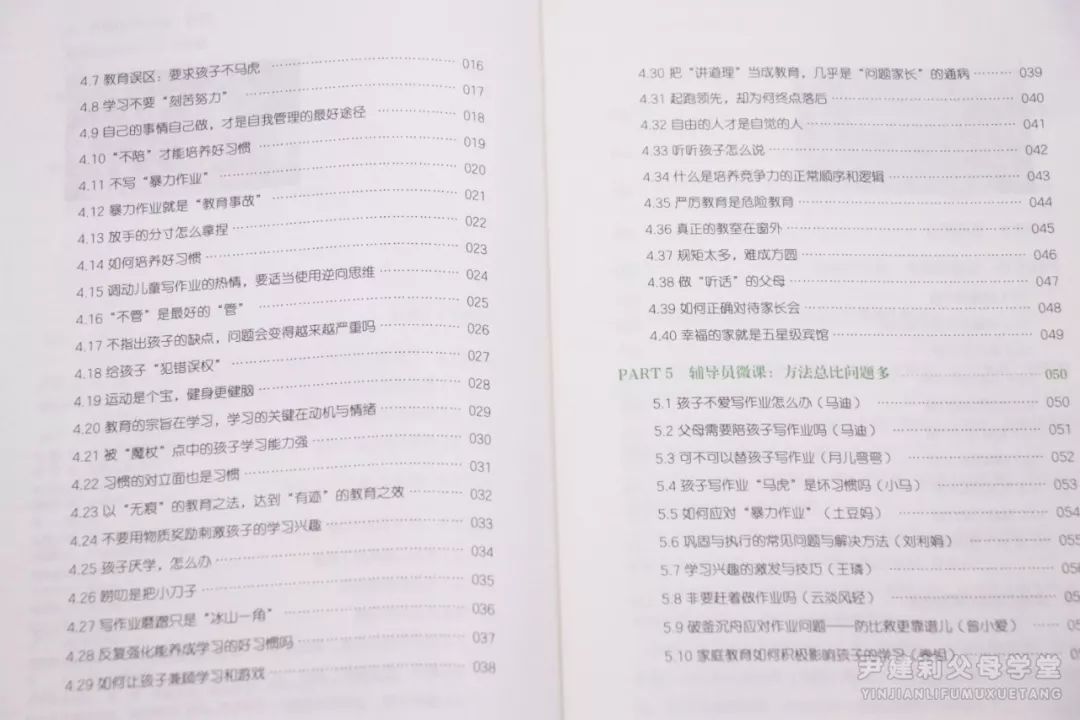 4.7 教育误区：要求孩子不马虎 ………… 016
4.8 学习不要“刻苦努力” ………… 017
4.9 自己的事情自己做，才是自我管理的最好途径 ………… 018
4.10 “不陪”才能培养好习惯 ………… 019
4.11 不写“暴力作业” ………… 020
4.12 暴力作业就是“教育事故” ………… 021
4.13 放手的分寸怎么拿捏 ………… 022
4.14 如何培养好习惯 ………… 023
4.15 调动儿童写作业的热情，要适当使用逆向思维 ………… 024
4.16 “不管”是最好的“管” ………… 025
4.17 不指出孩子的缺点，问题会变得越来越严重吗 ………… 026
4.18 给孩子“犯错误权” ………… 027
4.19 运动是个宝，健身更健脑 ………… 028
4.20 教育的宗旨在学习，学习的关键在动机与情绪 ………… 029
4.21 被“魔杖”点中的孩子学习能力强 ………… 030
4.22 习惯的对立面也是习惯 ………… 031
4.23 以“无痕”的教育之法，达到“有迹”的教育之效 ………… 032
4.24 不要用物质奖励刺激孩子的学习兴趣 ………… 033
4.25 孩子厌学，怎么办 ………… 034
4.26 唠叨是把小刀子 ………… 035
4.27 写作业磨蹭只是“冰山一角” ………… 036
4.28 反复强化能养成学习的好习惯吗 ………… 037
4.29 如何让孩子兼顾学习和游戏 ………… 038
4.30 把“讲道理”当成教育，几乎是“问题家长”的通病 ……… 039
4.31 起跑领先，却为何终点落后 ………… 040
4.32 自由的人才是自觉的人 ………… 041
4.33 听听孩子怎么说 ………… 042
4.34 什么是培养竞争力的正常顺序和逻辑 ………… 043
4.35 严厉教育是危险教育 ………… 044
4.36 真正的教室在窗外 ………… 045
4.37 规矩太多，难成方圆 ………… 046
4.38 做“听话”的父母 ………… 047
4.39 如何正确对待家长会 ………… 048
4.40 幸福的家就是五星级宾馆 ………… 049
PART 5 辅导员微课：方法总比问题多 ………… 050
5.1 孩子不爱写作业怎么办（马迪） ………… 050
5.2 父母需要陪孩子写作业吗（马迪） ………… 051
5.3 可不可以替孩子写作业（月儿弯弯） ………… 052
5.4 孩子写作业“马虎”是坏习惯吗（小马） ………… 053
5.5 如何应对“暴力作业”（土豆妈） ………… 054
5.6 巩固与执行的常见问题与解决方法（刘利娟） ………… 055
5.7 学习兴趣的激发与技巧（王璘） ………… 056
5.8 非要赶着做作业吗（云淡风轻） ………… 05
5.9 破釜沉舟应对作业问题——防比救更靠谱儿（曾小爱） …… 05
5.10 家庭教育如何积极影响孩子的学习 ………… 0
尹建莉父母学堂
YINJIANLIFUMUXUETANG